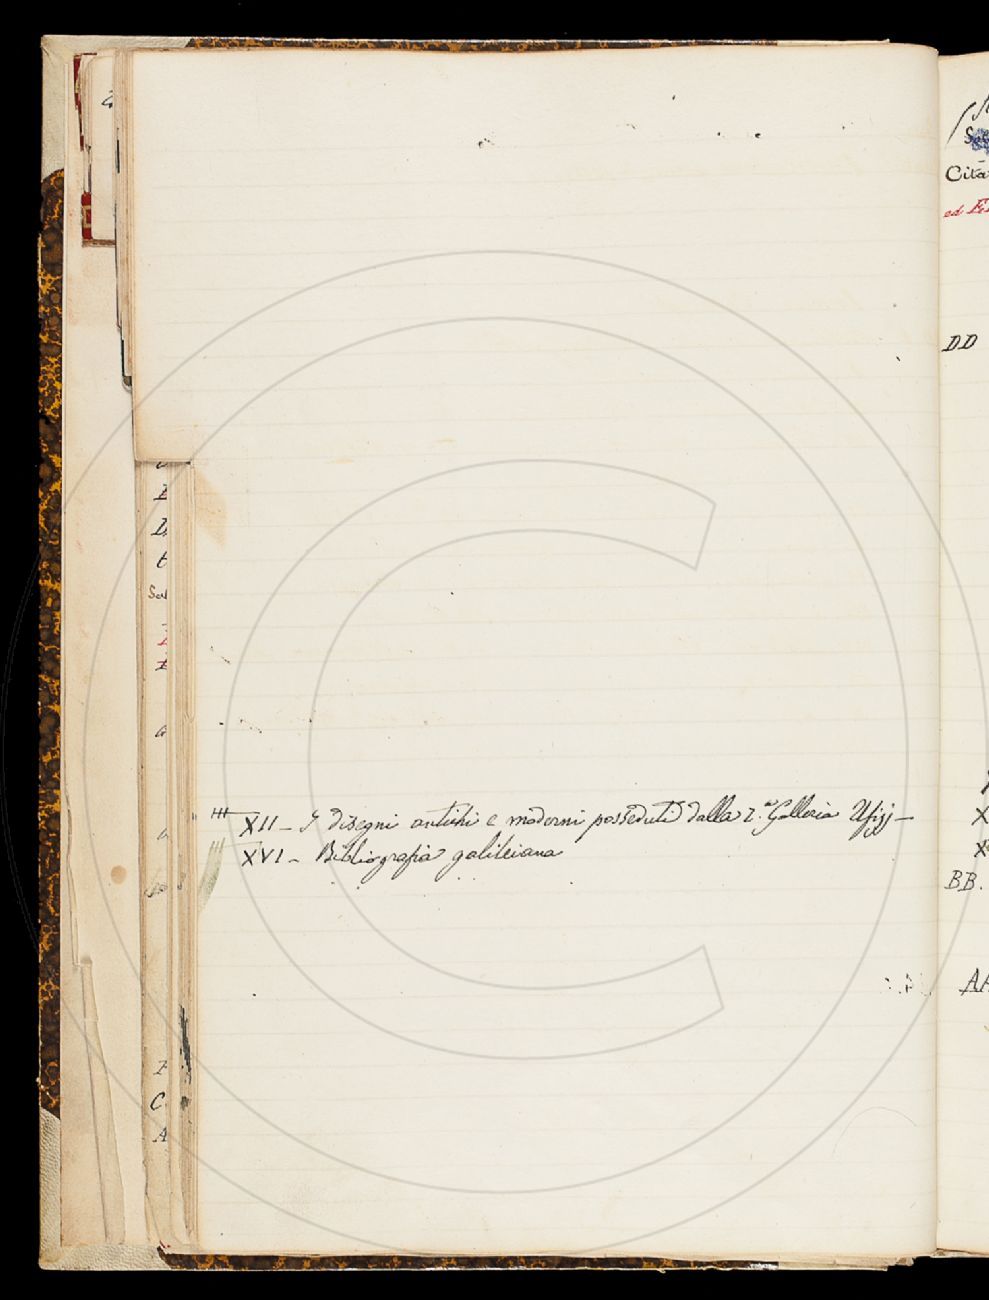 XII - I disegni antichi e moderni posseduti dalla R.ª Galleria Ufizj -
XVI - Bibliografia galileiana
Cita
ed
DD
X
X
BB.
AA
D
t
Sal
a
C
A